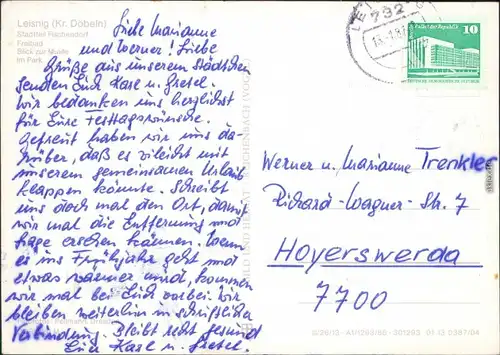 Leisnig (Kr. Döbeln)
Stadtteil Fischendorf
Freibad
Blick zur Muste
im Park
Liebe Marianne
und Werner! Liebe
Grüße aus unserem Städtchen
senden Euch Karl u. Gretel.
Wir bedanken uns herzlichst
für Eure Festtagswünsche.
Gefreut haben wir uns da-
rüber, daß es vielleicht mit
unserem gemeinsamen Urlaub
klappen könnte. Schreibt
uns doch mal den Ort, damit
wir mal die Entfernung und
Lage ersehen können. Wenn
es ins Frühjahr geht und
etwas wärmer wird, kommen
wir mal bei Euch vorbei. Wir
bleiben weiterhin in schriftlicher
Verbindung. Bleibt recht gesund
Eure Karl u. Gretel.
732
10
Werner u. Marianne Trenkler
Richard-Wagner-Str. 7
Hoyerswerda
7700